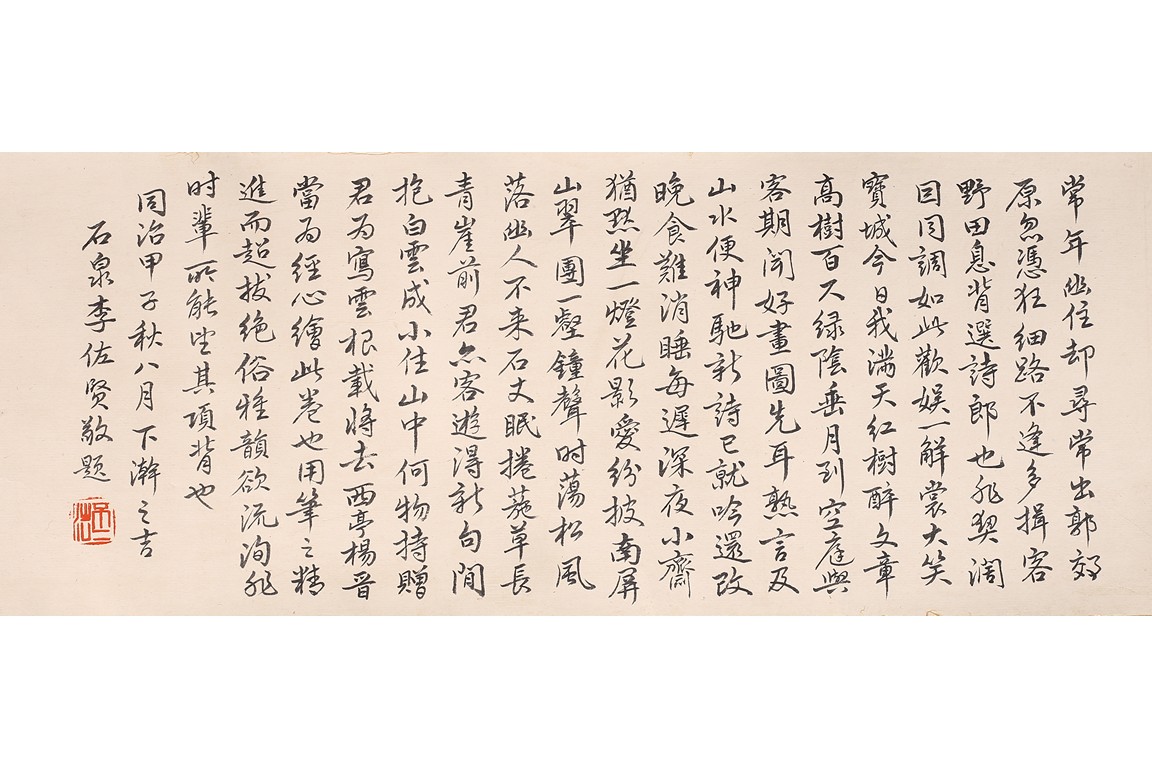 常年幽住却尋常出郭郊
原忽憑狂細路不逢多揖客
野田息背選詩郎也非契闊
因同調如此歡娱一解裳大笑
寶城今日我满天紅樹醉文章
高樹百尺緑陰垂月到空庭與
客期闻好畫圖先耳熟言及
山水便神馳新詩已就吟還改
晚食難消睡每遲深夜小齋
猶黙坐一燈花影愛紛披南屏
山翠團一壑鐘聲时蕩松風
落幽人不来石丈眠捲葹草長
青崖前君亦客遊得新句閒
抱白雲成小住山中何物持贈
君为寫雲根載將去西亭楊晋
當为經心繪此卷也用筆之精
進而超拔绝俗雅韻欲流洵非
时輩所能望其項背也
同治甲子秋八月下澣之吉
石泉李佐贤敬题